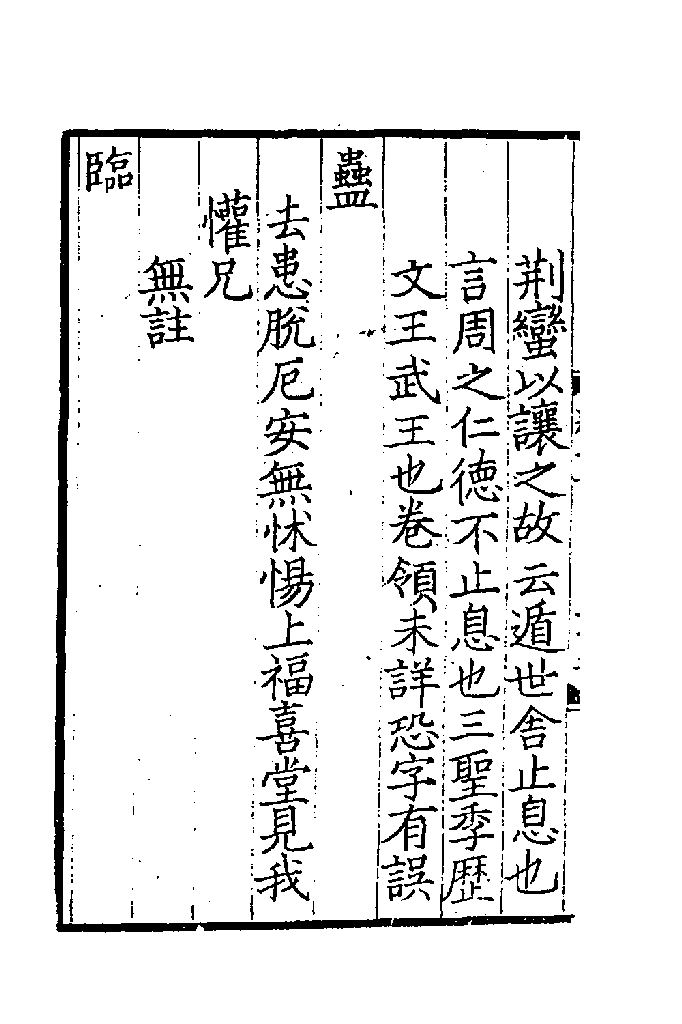 荆蠻以讓之故云遁世舎止息也
言周之仁徳不止息也三聖季歴
文王武王也卷領未詳恐字有誤
蠱
去患脱厄安無怵惕上福喜堂見我
懽兄
無註
臨